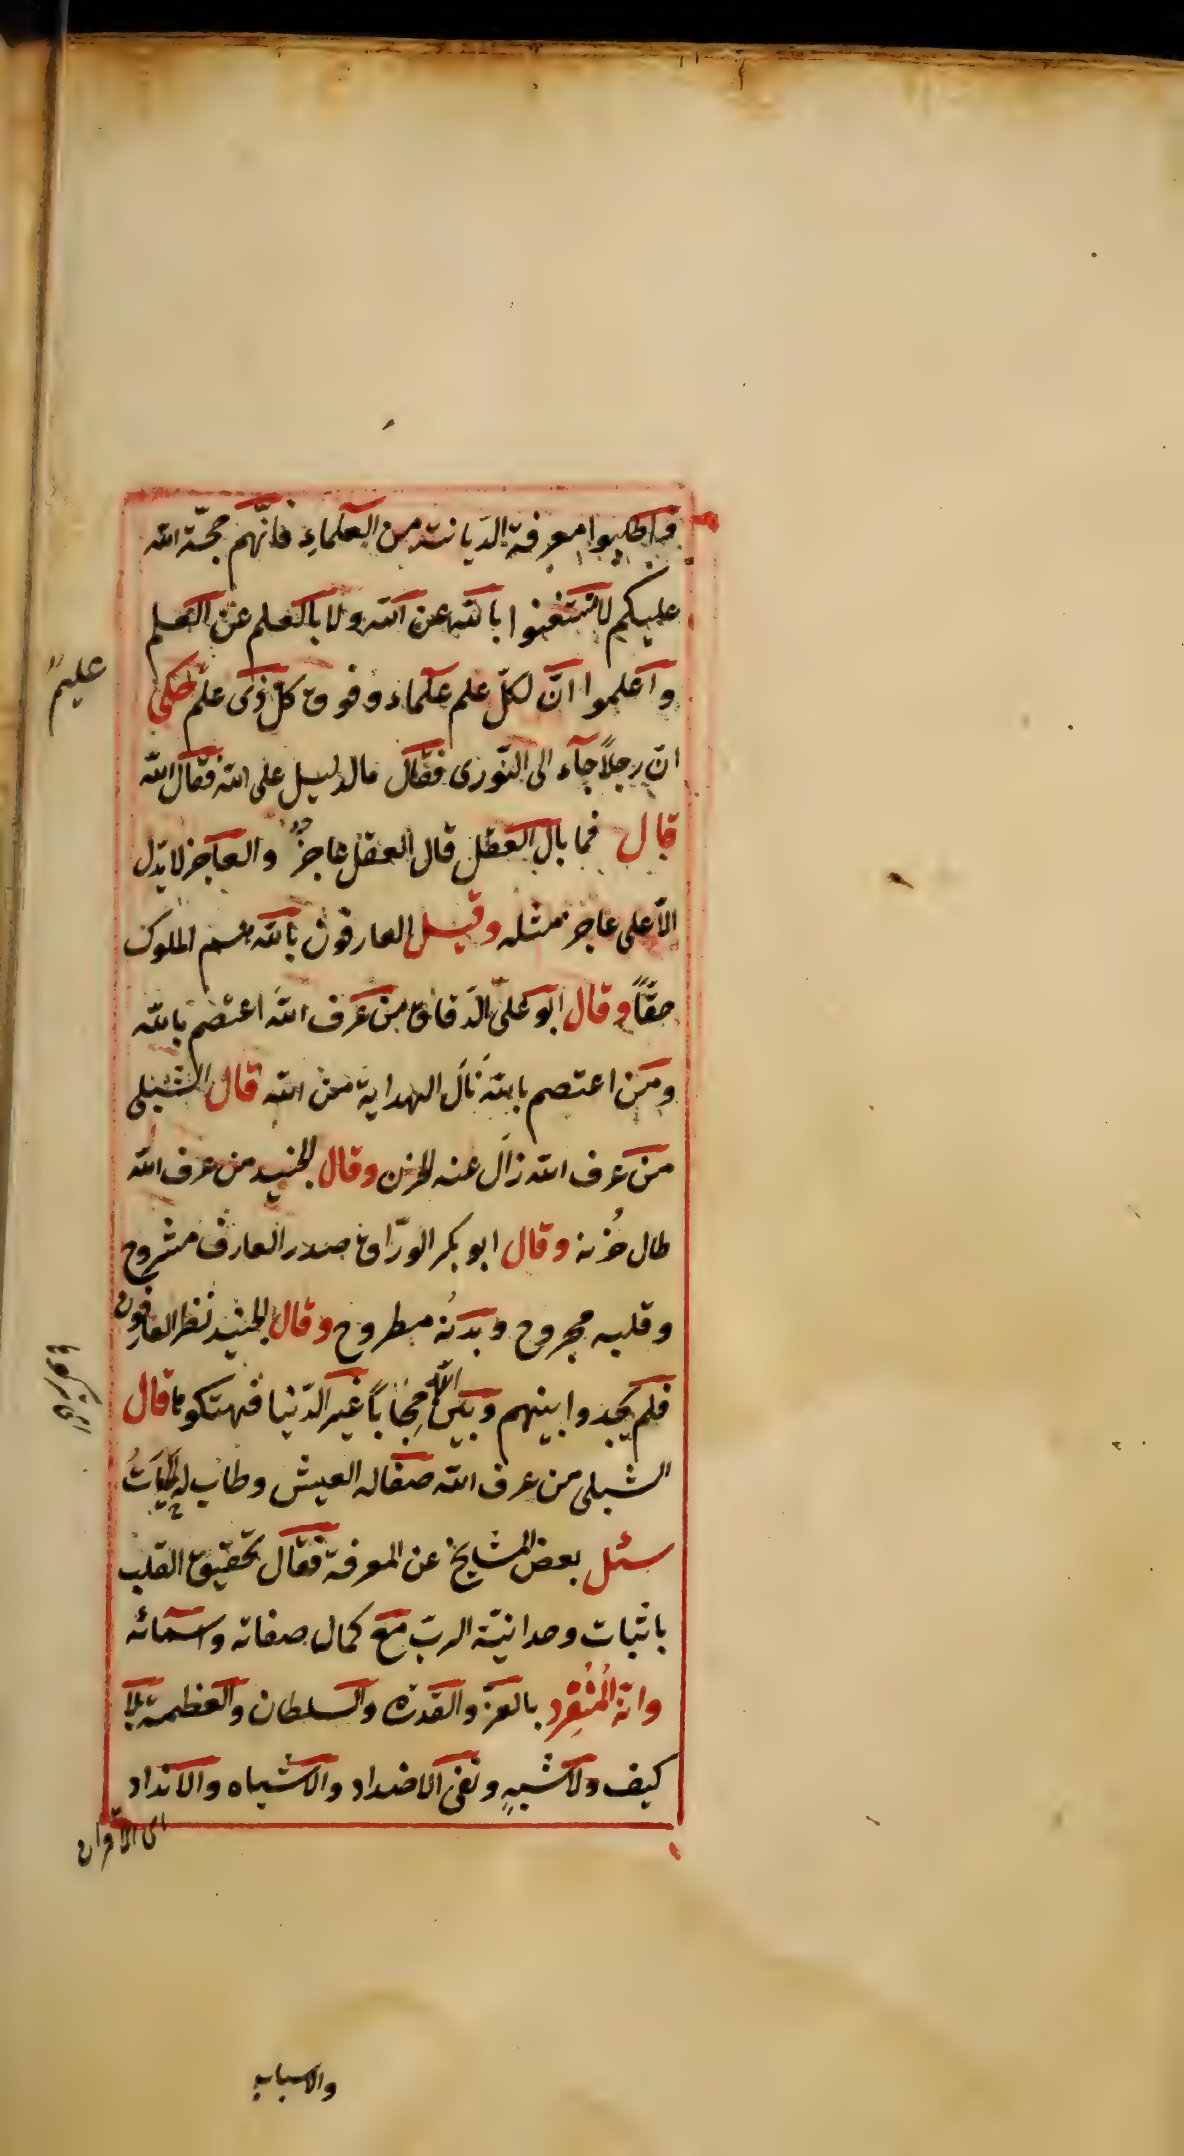 فاطلبوا معرفة الديانة من العلماء فانّهم حجّة الله
عليكم لا تستغنوا بالله عن الله ولا بالعلم عن العلم
واعلموا انّ لكلّ علم علماء وفوق كلّ ذى علم حكى
عليم
ان رجلاً جآء الى النّورى فقال مالدليل على الله فقال الله
قال فما بال العقل قال العقل عاجزٌ والعاجز لا يدّل
الاّ على عاجز مثله وقيل العارفون بالله هم الملوك
حقّاً وقال ابو علىّ الدّقاق من عرف الله اعتصم بالله
ومن اعتصم بالله نال الهداية من الله قال الشبلى
من عرف الله زال عنه الحزن وقال الجنيد من عرف الله
طال حُزنه وقال ابو بكر الورّاق صدر العارف مشروح
وقلبه مجروح وبدنُه مطروح وقال الجنيد نظر العارفون
فلم يجدوا بينهم وبين الله حِجاباً غير الدّنيا فهتكوها قال
الشبلى من عرف الله صفا له العيش وطاب له الحيَاتُ
سئل بعض المشايخ عن المعرفة فقال تحقيق القلب
باثبات وحدانيّة الربّ مع كمال صفاته واسمائه
وانّه المُنْفِرد بالعزّ والقدرة والسلطان والعظمة بلا
كيف ولا شبهٍ ونفى الاضداد والاشباه والانداد
اى الاقران
والاسباب